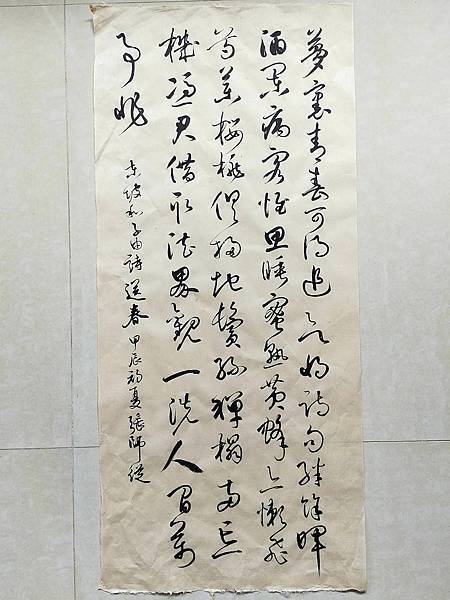 夢裏青春可得追欲將詩句絆餘暉
酒闌病客惟思睡蜜熟黄蜂亦懶飛
芍葯櫻桃俱掃地鬢絲禪榻兩忘
機憑君借取法界觀一洗人間萬
事非
東坡和子由詩送春甲辰初夏張師從